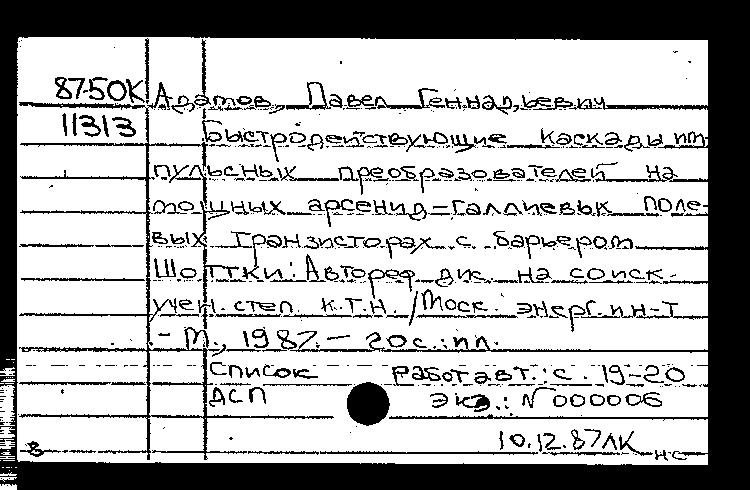 87-50К Адамов, Павел Геннадьевич
11313 Быстродействующие каскады им-
пульсных преобразователей на
мощных арсенид-галлиевых поле-
вых транзисторах с барьером
Шоттки: Автореф. дис. на соиск.
учен. степ. к.т.н. / Моск. энерг. ин-т
- М., 1987. - 20 с.: ил.
Список работ авт.: с. 19-20
ДСП экз.: N 000006
10.12.87 ЛК нс
в